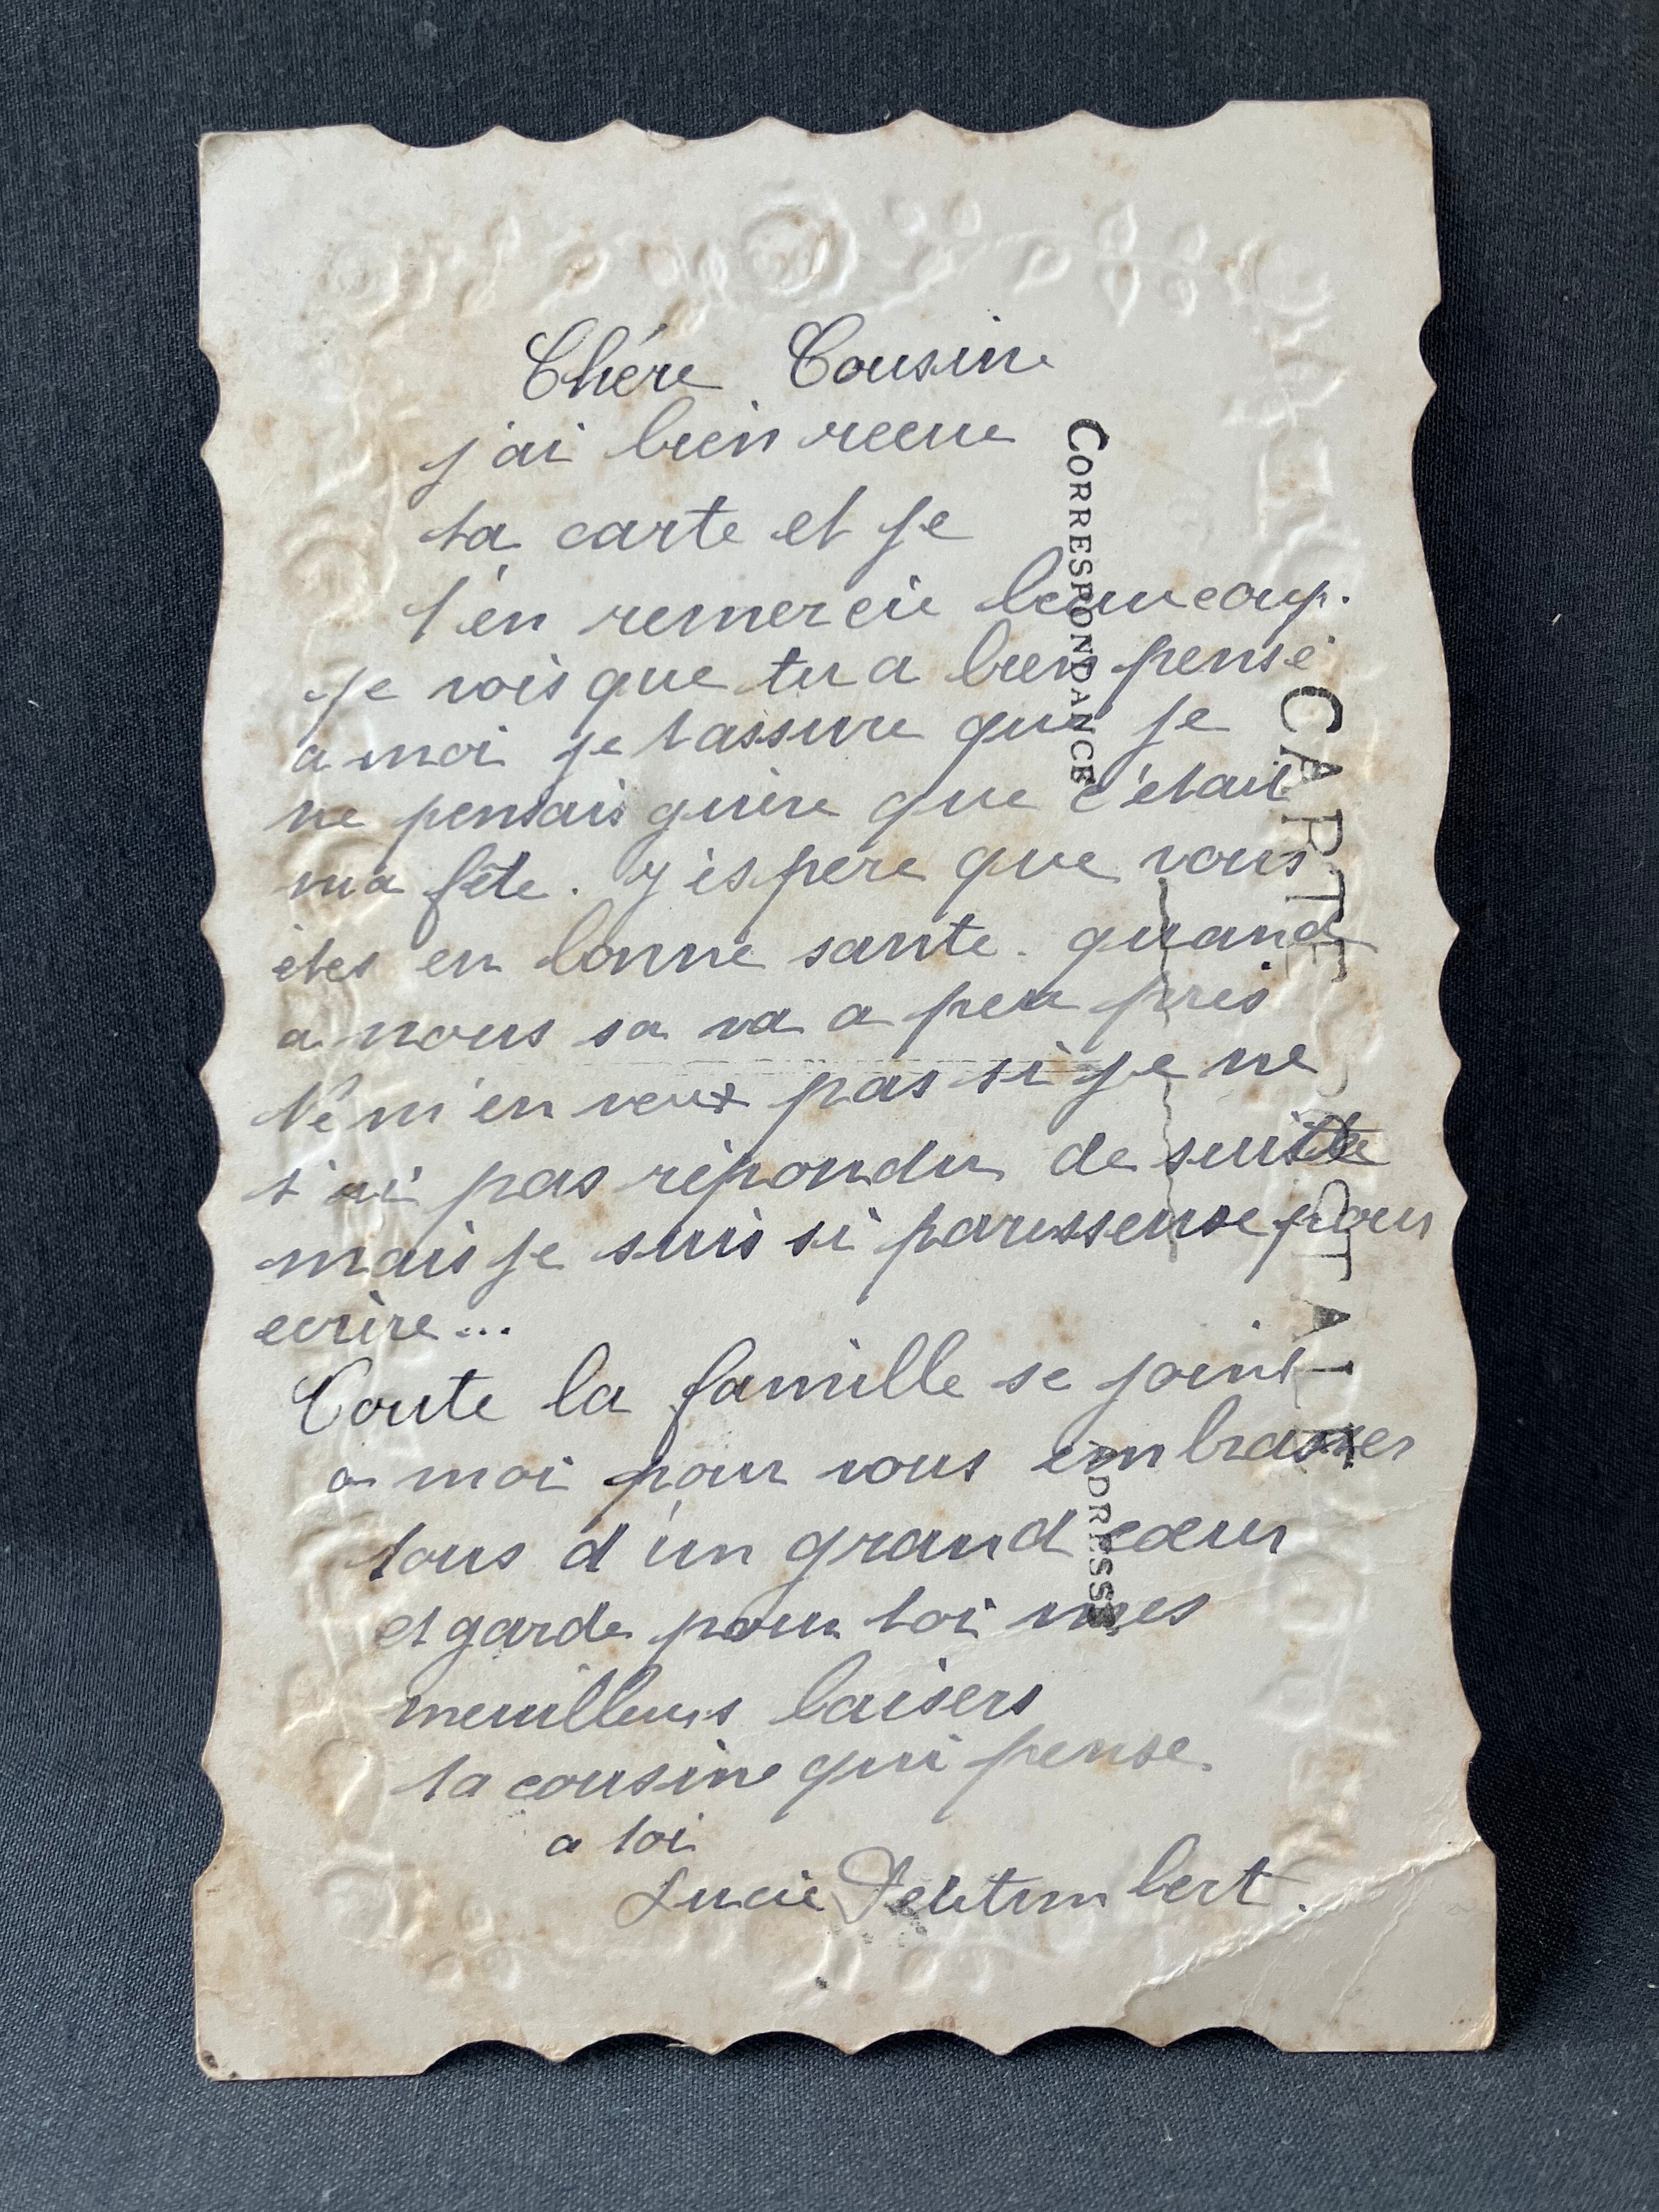 Chére Cousine
j'ai bien recue
ta carte et je
t'en remercie beaucoup.
je vois que tu a bien pensé
a moi je t'assure que je
ne pensais guère que c'était
ma fête. J'éspère que vous
êtes en bonne sante. quand
a nous sa va a peu près
Ne m'en veux pas si je ne
t'ai pas répondu de suite
mais je suis si paresseuse pour
ecrire...
Toute la famille se joint
a moi pour vous embrasser
tous d'un grand cœur
et garde pour toi mes
meuilleurs baisers
ta cousine qui pense
a toi
Lucie
CORRESPONDANCE
CARTE POSTALE
ADRESSE